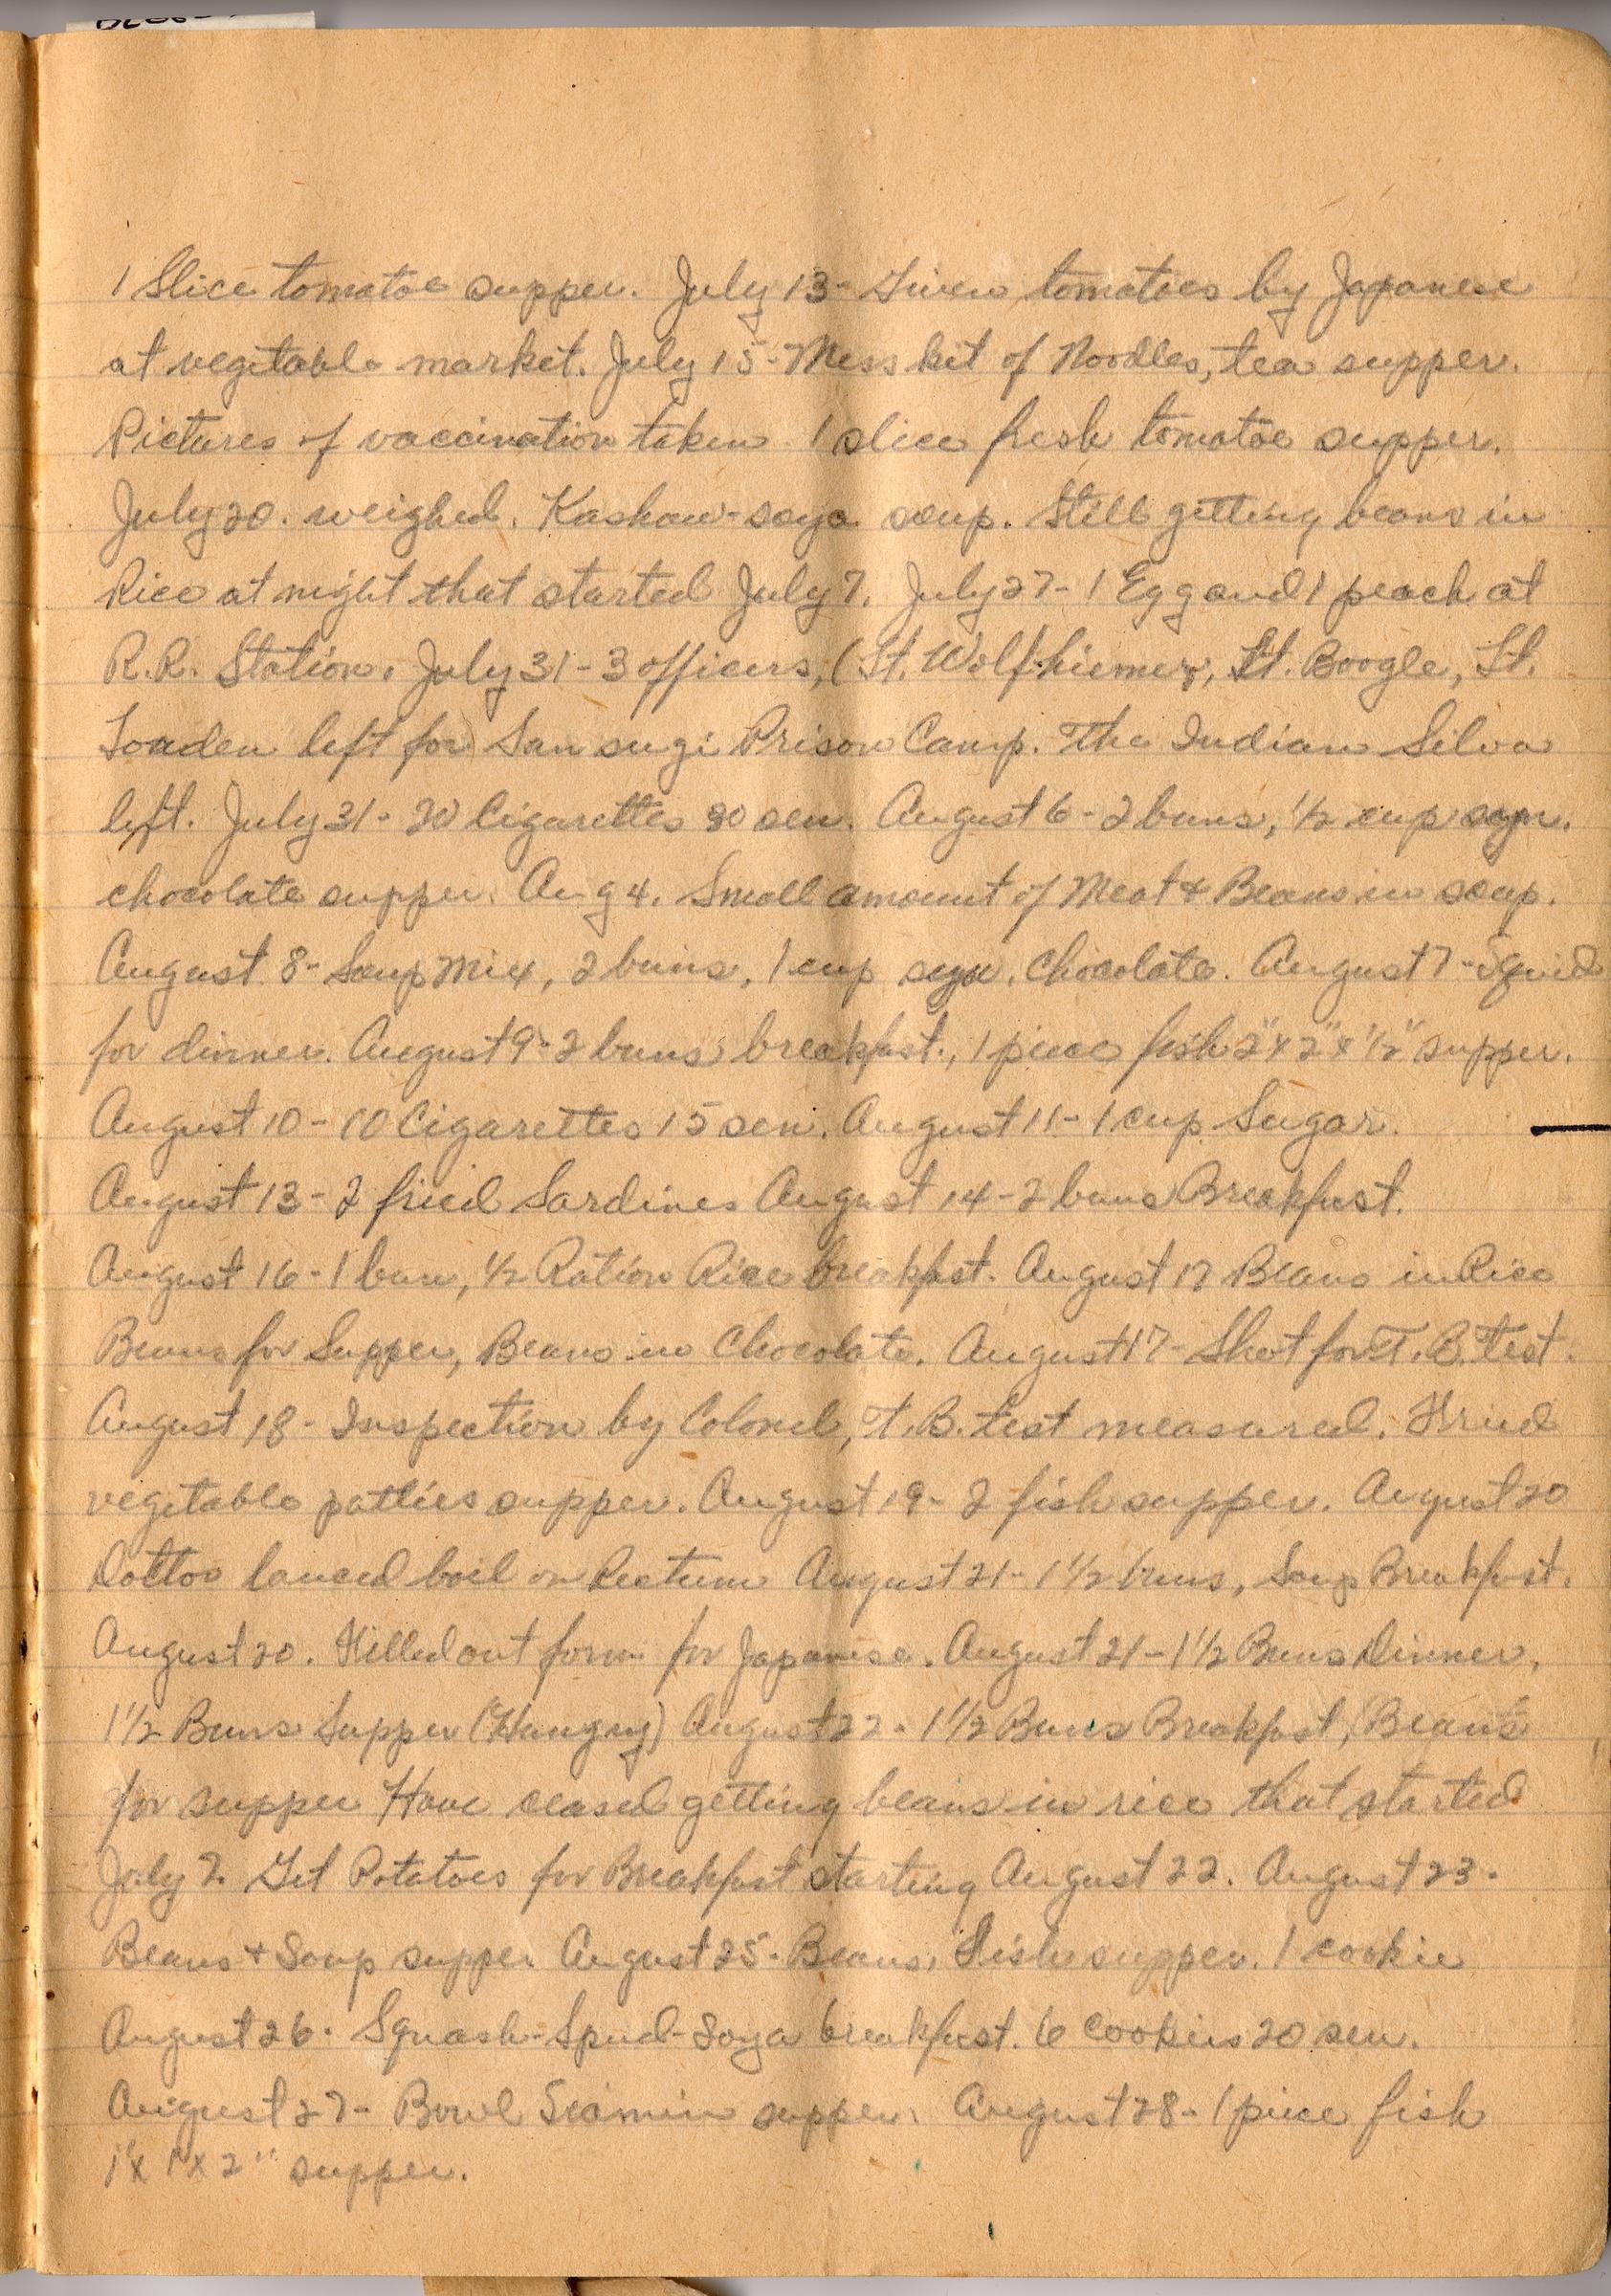 1 Slice tomatoe supper. July 13- Given tomatoes by Japanese
at vegitable market. July 15- Mess kit of Noodles, tea supper.
Pictures of vaccination taken 1 slice fresh tomatoe supper.
July 20. weighed. Kashaw-soya soup. Still getting beans in
Rice at night that started July 7. July 27- 1 Egg and 1 peach at
R.R. Station. July 31-3 officers, (Lt. Wolfhiemer, Lt. Boogle, Lt.
left for) San sugi Prison Camp. The Indian Silva
left. July 31- 20 Cigarettes 30 sen. August 6-2 buns, 1/2 cup
chocolate supper. Aug 4. Small amount of Meat & Beans in soup.
August 8- Soup Mix, 2 buns, 1 cup chocolate. August 7-Squid
for dinner. August 9-2 buns breakfast., 1 piece fish 2"x2"x1/2" supper.
August 10-10 Cigarettes 15 sen. August 11-1 cup Sugar.
August 13-2 fried Sardines August 14-2 buns Breakfast.
August 16-1 bun, 1/2 Ration Rice breakfast. August 17 Beans in Rice
Beans for Supper, Beans in Chocolate. August 17- Shot for T.B. Test.
August 18- Inspection by Colonel, T.B. test measured. Fried
vegitable patties supper. August 19- 2 fish supper. August 20
lanced boil on Rectum August 21- 1 1/2 buns, Soup Breakfast.
August 20. Filled out form for Japanese. August 21-1 1/2 Buns Dinner,
1 1/2 Buns Supper (Hungry) August 22- 1 1/2 Buns Breakfast, Beans
for supper Have ceased getting beans in rice that started
July 7. Get Potatoes for Breakfast starting August 22. August 23-
Beans + Soup supper August 25- Beans, Fish supper. 1 cookie
August 26- Squash-Spud-Soya breakfast. 6 cookies 20 sen.
August 27- Bowl supper. August 28-1 piece fish
1"x1"x2" supper.